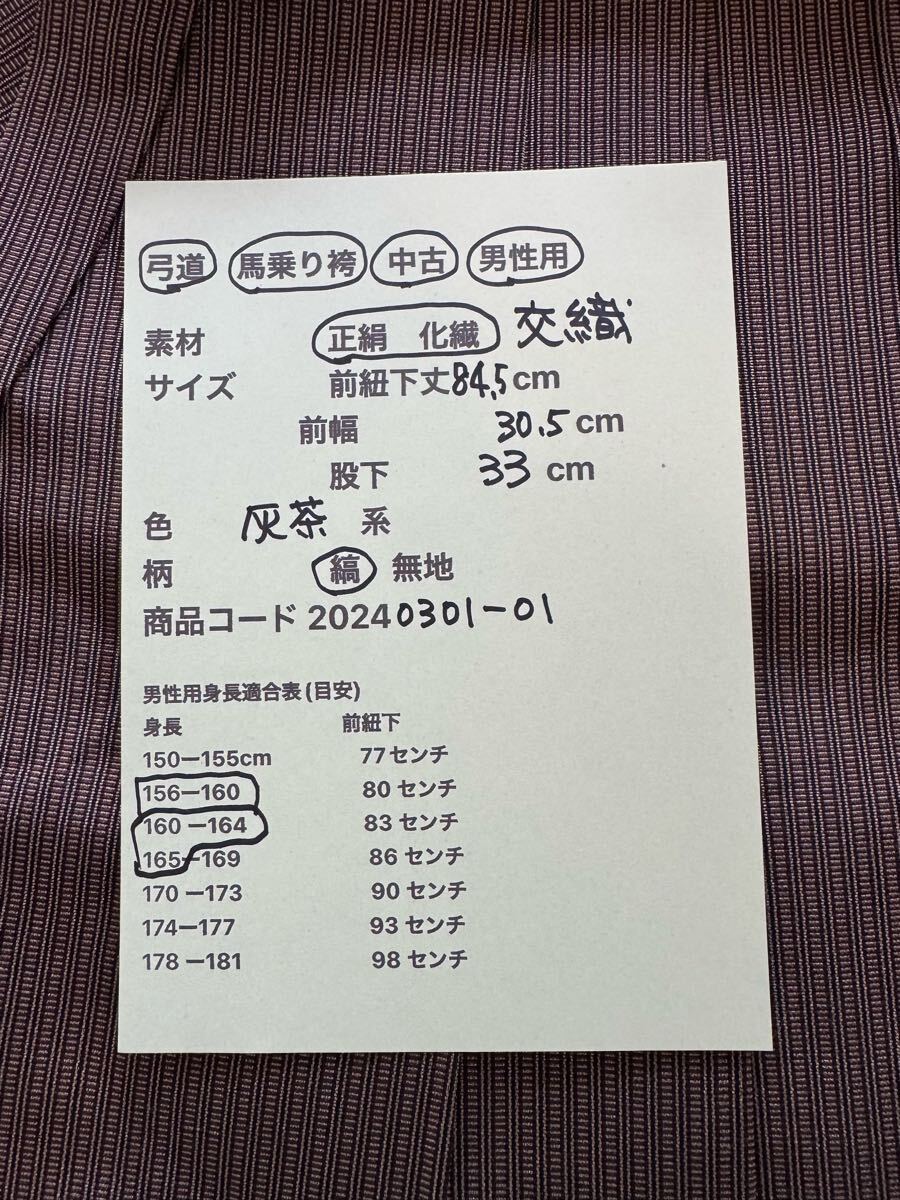 弓道 馬乗り袴 中古 男性用
素材 正絹 化繊 交織
サイズ 前紐下丈84.5cm
前幅 30.5cm
股下 33cm
色 灰茶 系
柄 縞 無地
商品コード 20240301-01
男性用身長適合表(目安)
身長 前紐下
150ー155cm 77センチ
156ー160 80センチ
160ー164 83センチ
165ー169 86センチ
170ー173 90センチ
174ー177 93センチ
178ー181 98センチ